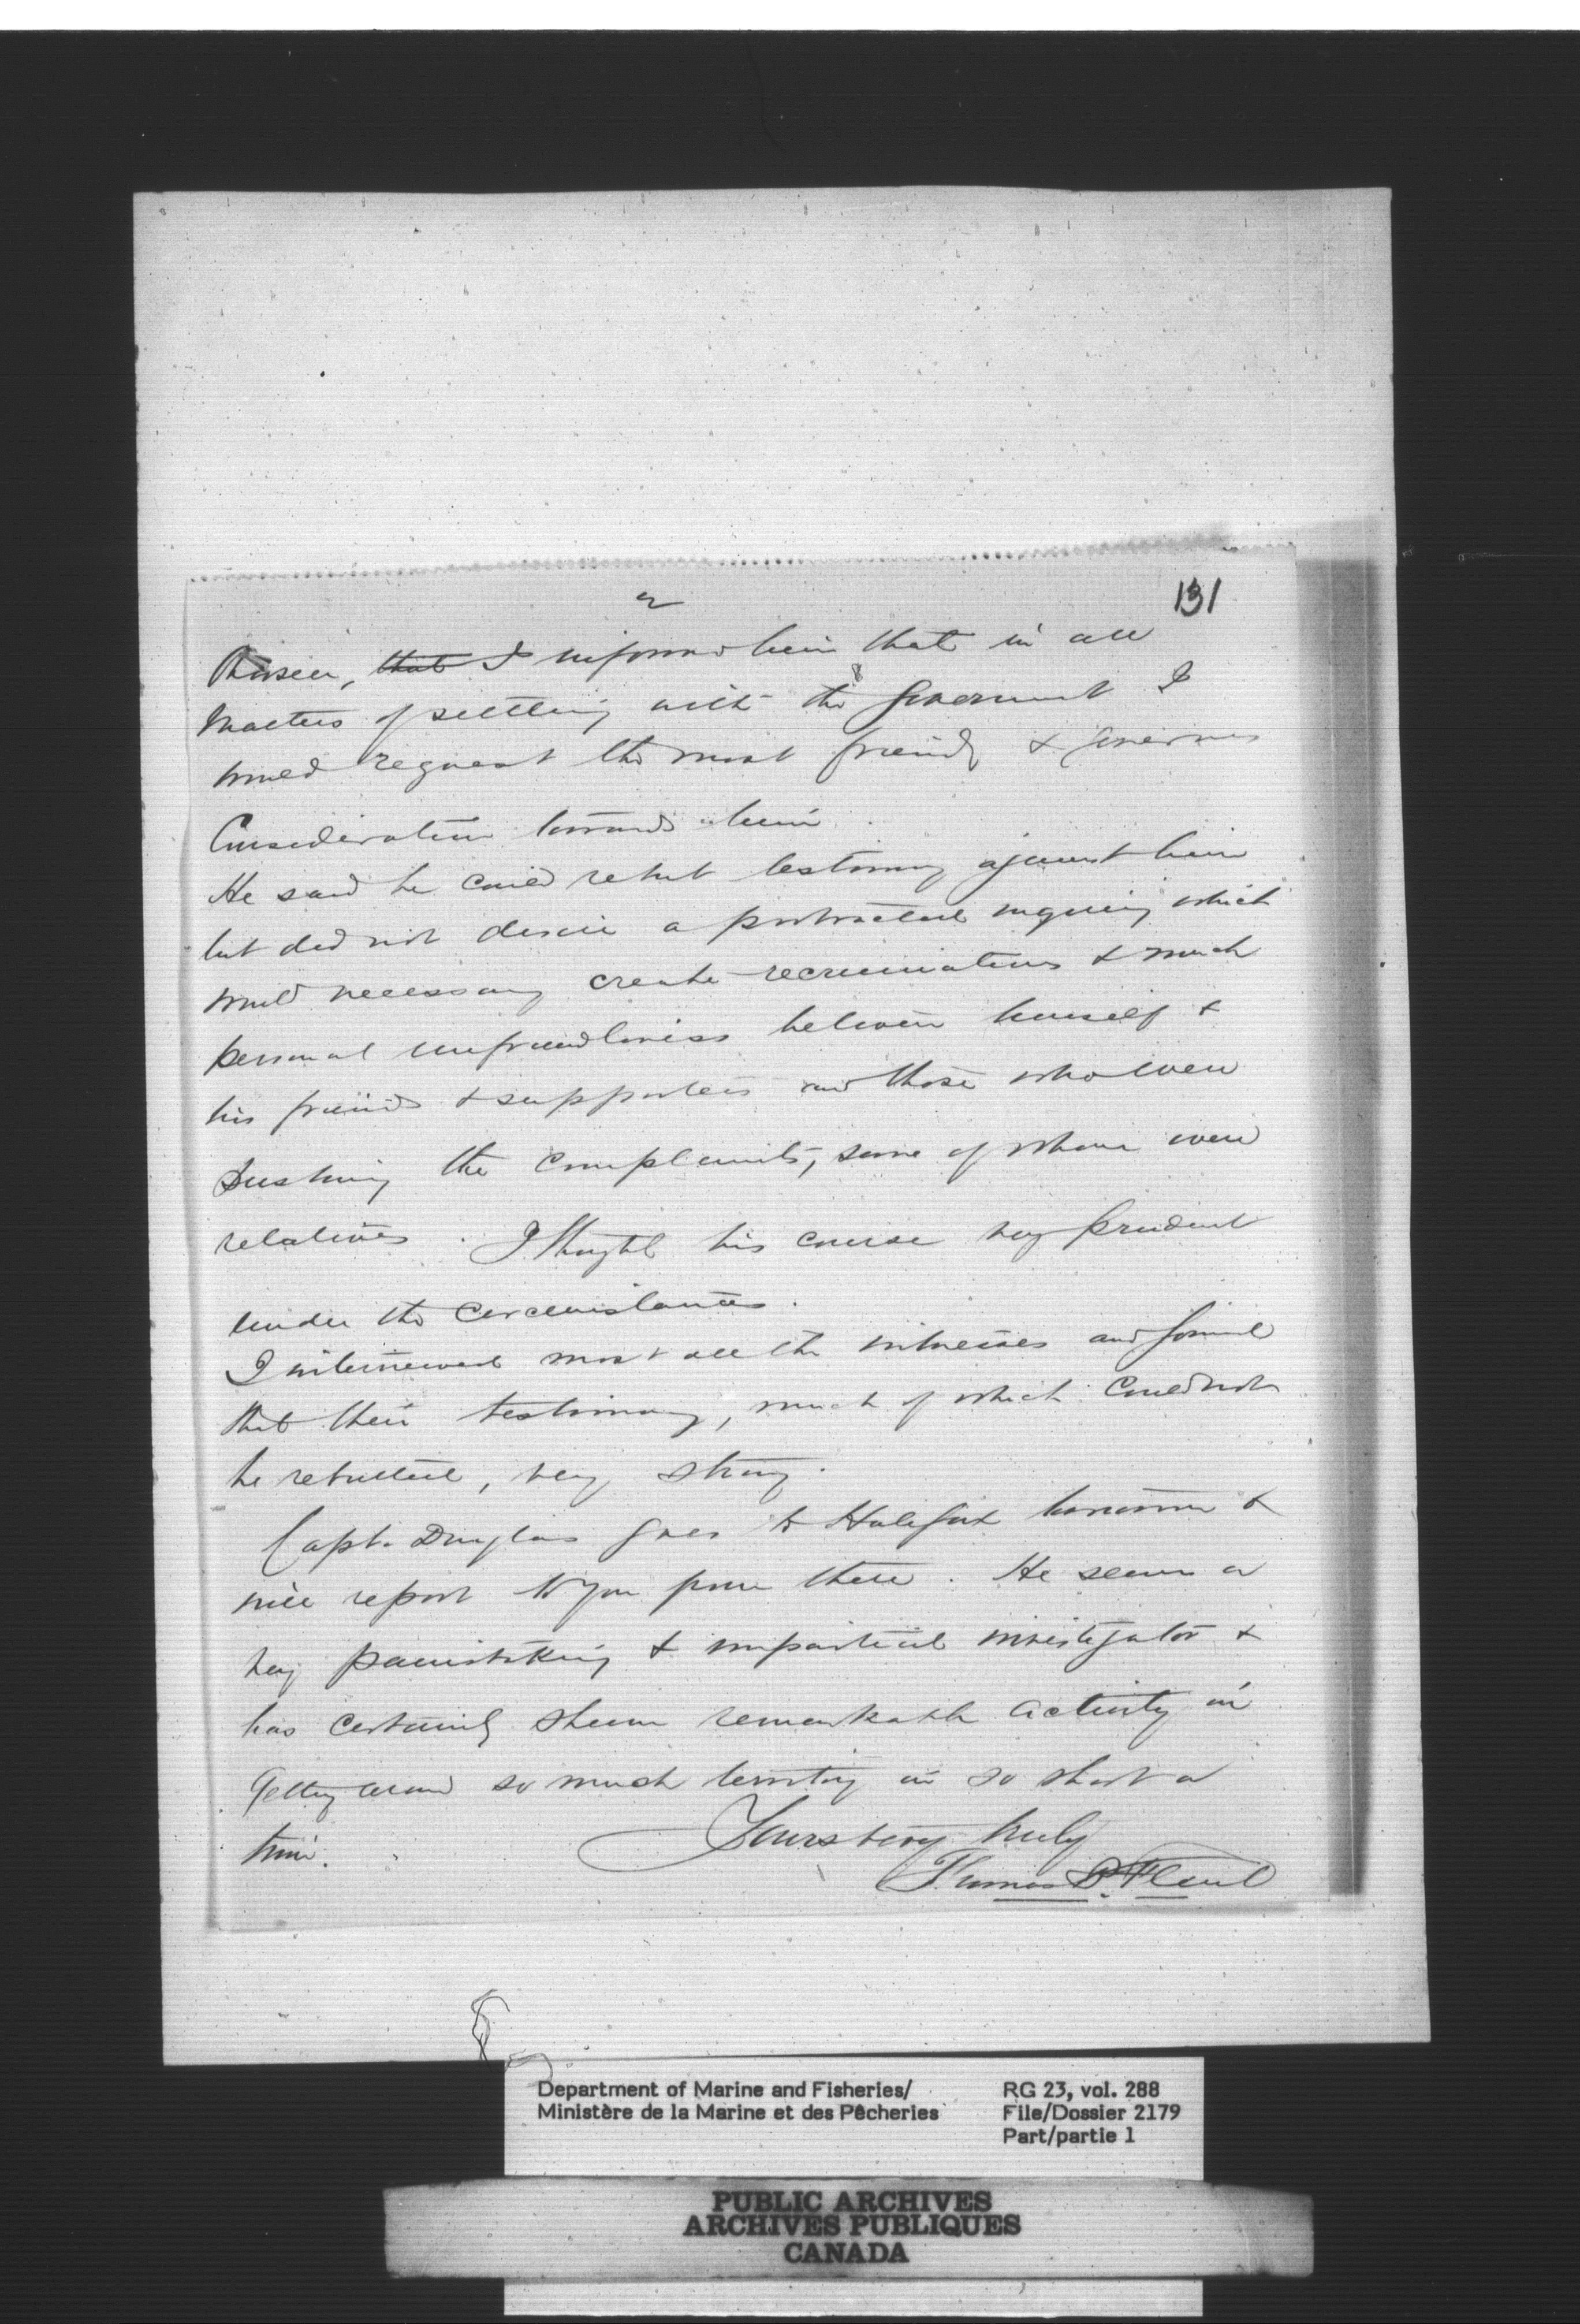 2
131
I informed him that in all
matters of settling with the Government I
would request the most friendly & generous
Consideration towards him.
He said he could rebut testimony against him
but did not desire a protracted inquiry which
would necessary create recriminations & much
personal unfriendliness between himself &
his friends & supporters and those who were
pushing the complaints, some of whom were
relatives. I thought his course very prudent
under the circumstances.
I interviewed most all the witnesses and found
that their testimony, much of which could not
be rebutted, very strong.
Capt. Douglas goes to Halifax tomorrow &
will report to you from there. He seems a
very painstaking & impartial investigator &
has certainly shewn remarkable activity in
getting around so much territory in so short a
time.
Yours very truly
Thomas
Department of Marine and Fisheries/
Ministère de la Marine et des Pêcheries
RG 23, vol. 288
File/Dossier 2179
Part/partie 1
PUBLIC ARCHIVES
ARCHIVES PUBLIQUES
CANADA